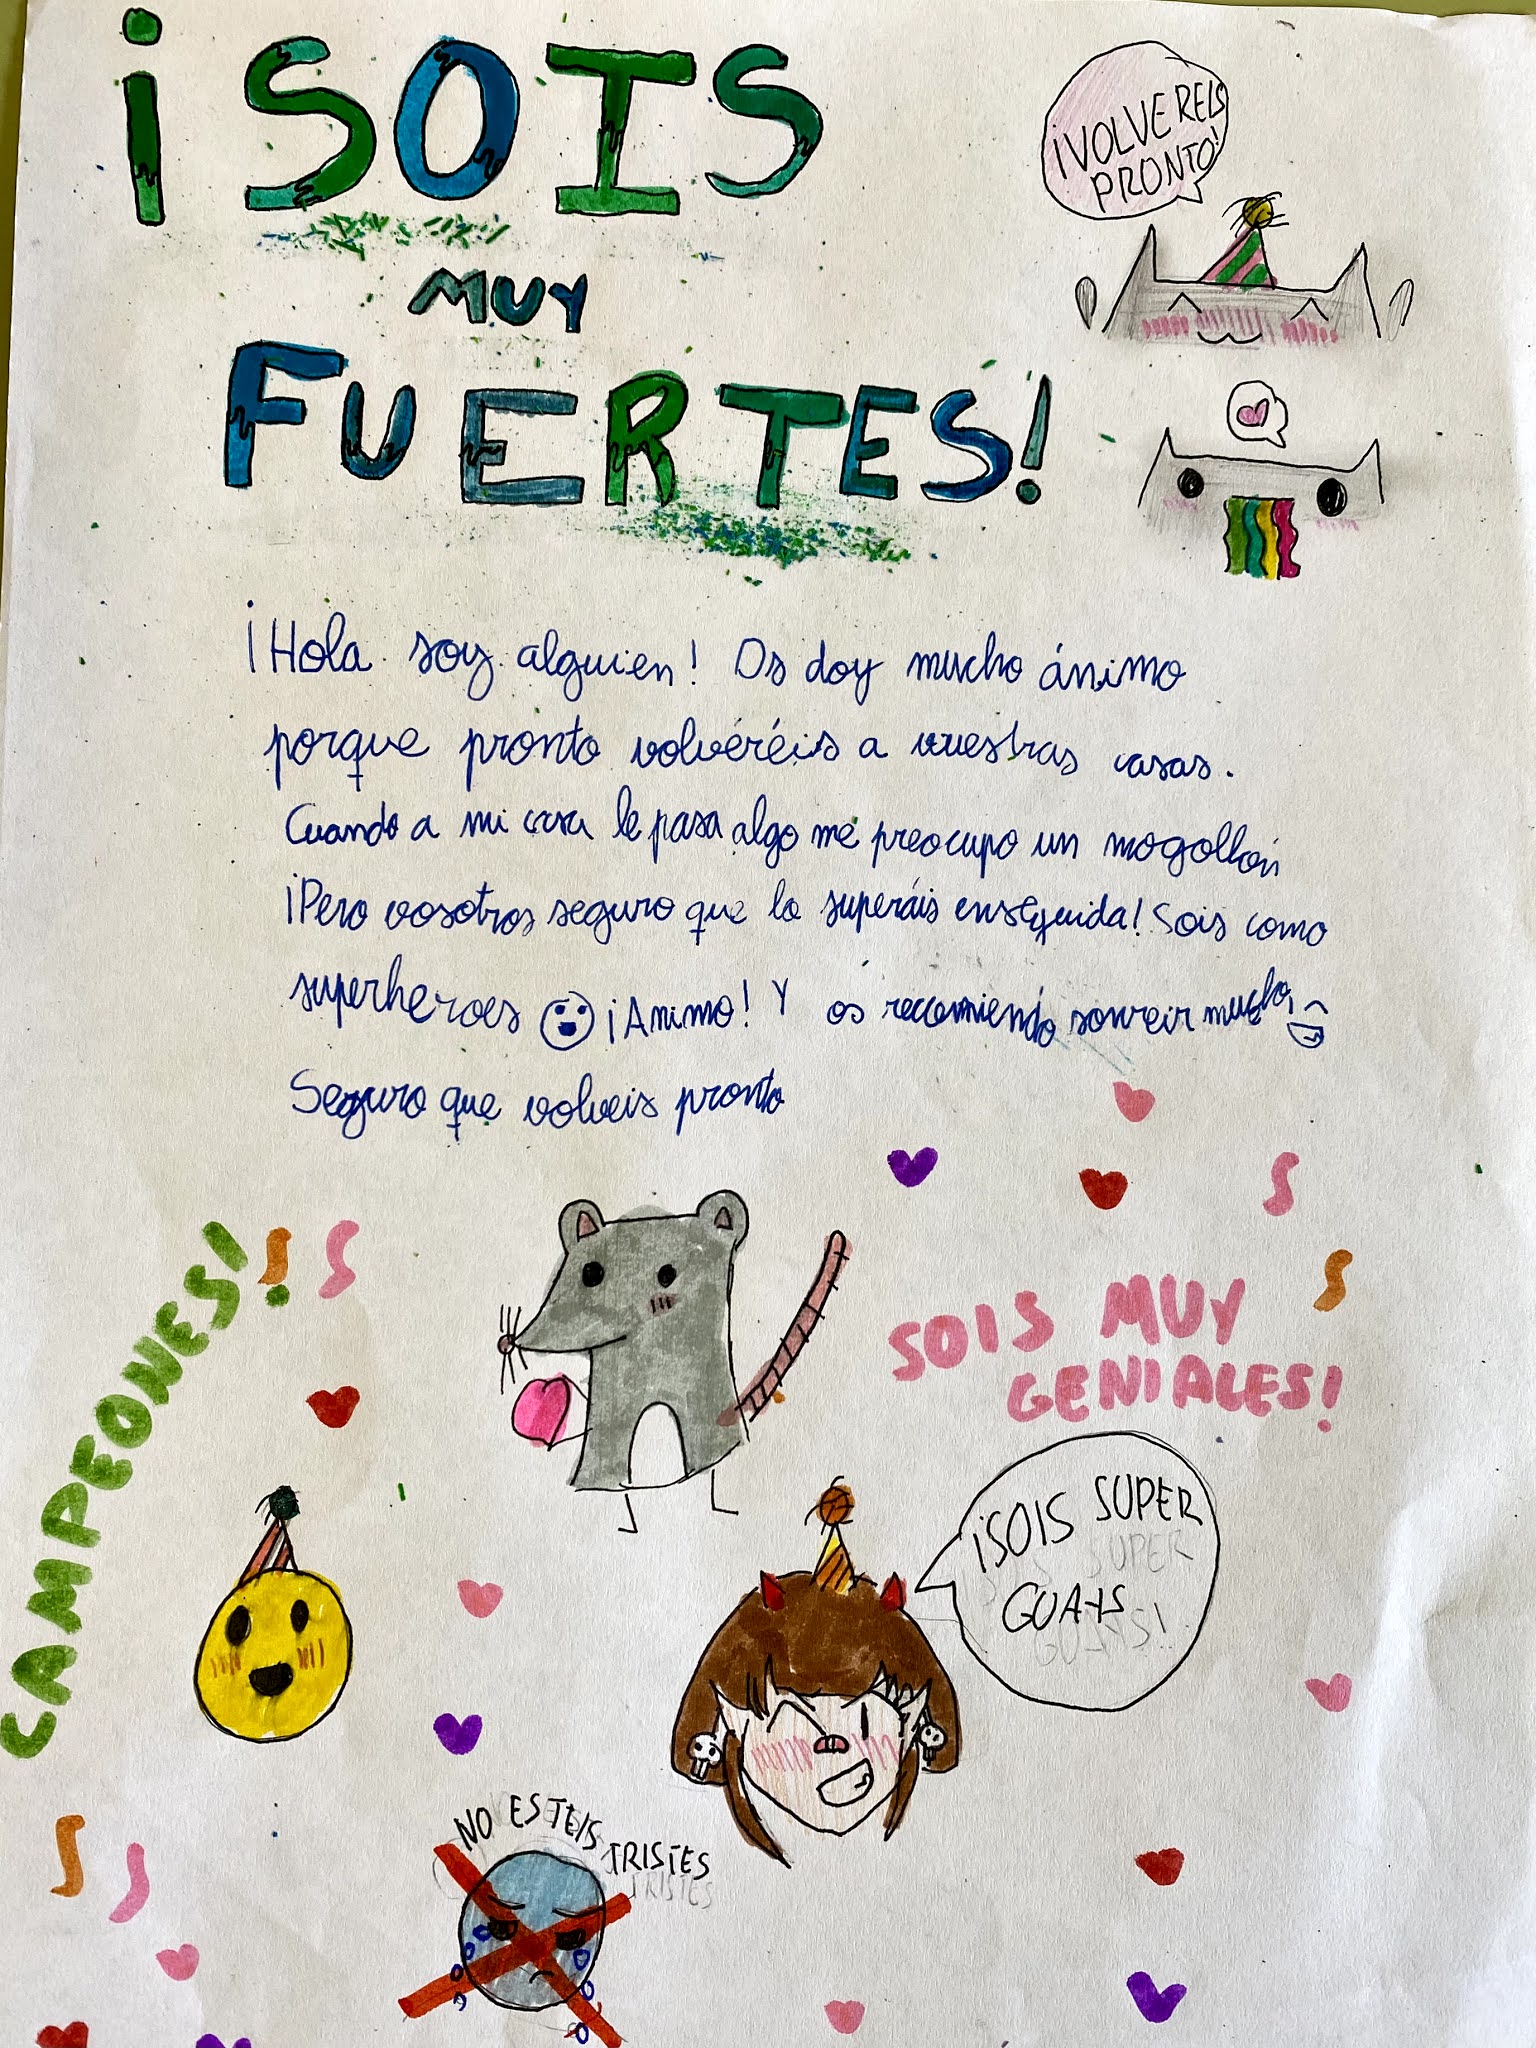 ¡SOIS
MUY
FUERTES!
¡VOLVEREIS
PRONTO!
¡Hola soy alguien! Os doy mucho ánimo
porque pronto volvéréis a vuestras casas.
Cuando a mi casa le pasa algo me preocupo un mogollón
¡Pero vosotros seguro que lo superáis enseguida! Sois como
superheroes ¡Animo! Y os recomiendo sonreir mucho,
Seguro que volveis pronto
CAMPEONES!
SOIS MUY
GENIALES!
¡SOIS SUPER
GUAYS
NO ESTEIS
TRISTES